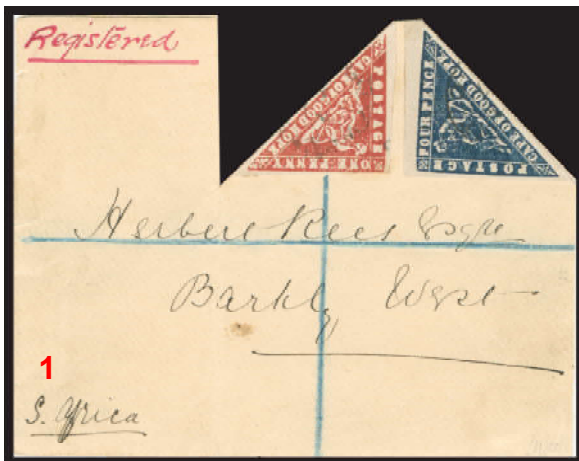 Registered
CAPE OF GOOD HOPE
POSTAGE
ONE PENNY
FOUR PENCE
CAPE OF GOOD HOPE
POSTAGE
Herbert Rees Esqre
Barkly West
1
S. Africa